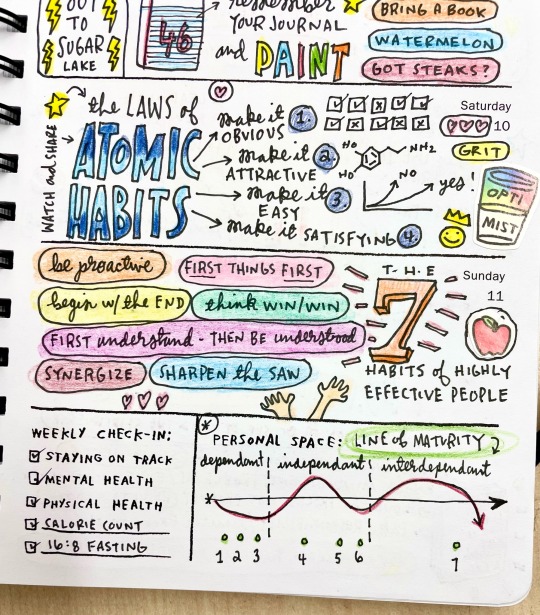 OUT
TO
SUGAR
LAKE
46
remember
YOUR JOURNAL
and PAINT
BRING A BOOK
WATERMELON
GOT STEAKS?
WATCH and SHARE
the LAWS of
ATOMIC
HABITS
make it 1.
OBVIOUS
make it 2.
ATTRACTIVE
make it 3.
EASY
make it SATISFYING 4.
HO
HO
NH2
NO
yes!
Saturday
10
GRIT
OPTI
MIST
be proactive
FIRST THINGS FIRST
begin w/ the END
think WIN/WIN
FIRST understand - THEN BE understood
SYNERGIZE
SHARPEN the SAW
T-H-E
7
HABITS of HIGHLY
EFFECTIVE PEOPLE
Sunday
11
WEEKLY CHECK-IN:
STAYING ON TRACK
MENTAL HEALTH
PHYSICAL HEALTH
CALORIE COUNT
16:8 FASTING
* PERSONAL SPACE: LINE of MATURITY
dependant independant interdependant
*
1 2 3 4 5 6 7